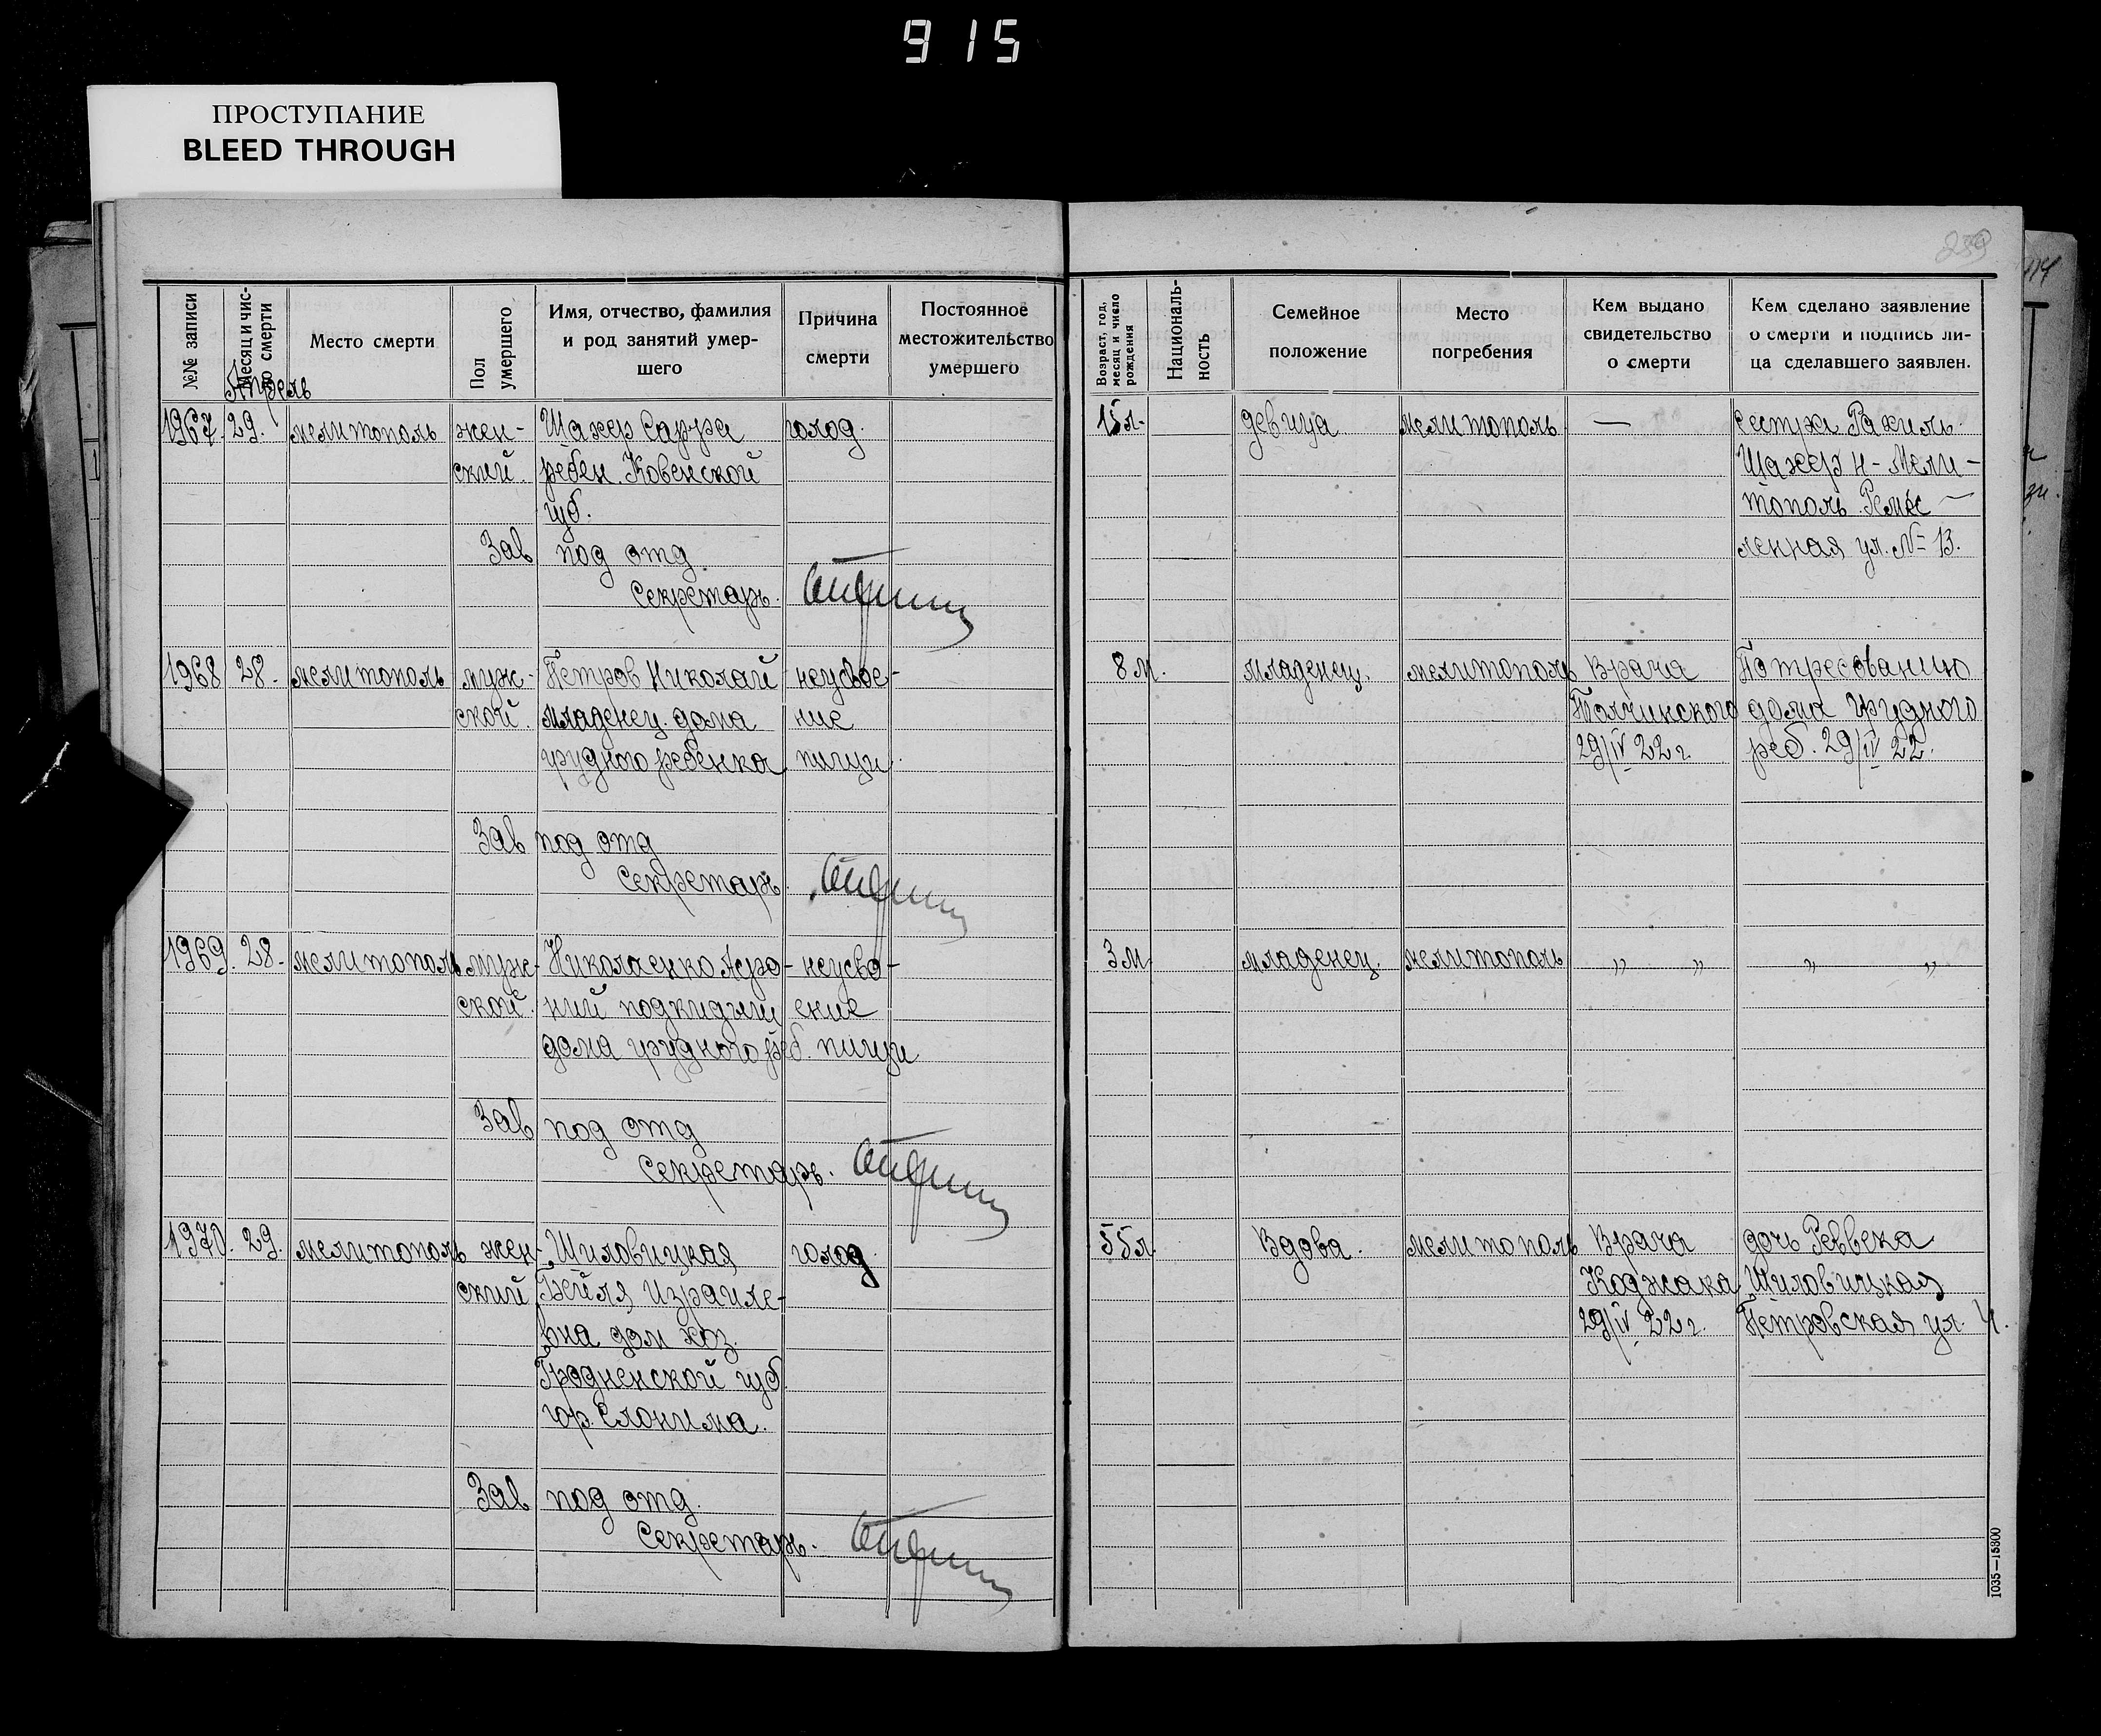 915
ПРОСТУПАНИЕ
BLEED THROUGH
239
№№ записи
Месяц и чис-
ло смерти
Апрель
Место смерти
Пол
умершего
Имя, отчество, фамилия
и род занятий умер-
шего
Причина
смерти
Постоянное
местожительство
умершего
Возраст, год,
месяц и число
рождения
Националь-
ность
Семейное
положение
Место
погребения
Кем выдано
свидетельство
о смерти
Кем сделано заявление
о смерти и подпись ли-
ца сделавшего заявлен.
1967. 29. мелитополь жен- Шахер Сарра голод. 15л- девица мелитополь — сестра Рахиль
ский. ребен. Ковенской Шахер н- Мели-
губ. тополь Реме —
Зав под отд. ленная ул. № 13.
Секретарь.
1968 28. мелитополь муж- Петров Николай неусвое- 8 м. младенец. мелитополь Врача По требованию
ской. младенец дома ние дома грудного
грудного ребенка пищи. 29/IV 22 г. реб. 29/IV 22.
Зав под отд
Секретарь.
1969. 28. мелитополь муж- Николаенко неусво- 3 м младенец. мелитополь " " " "
ской. подкидыш ение
дома грудного реб. пищи
Зав под отд
Секретарь.
1970. 29. мелитополь жен- Шиловицкая голод 55л Вдова. мелитополь Врача дочь Реввека
ский Бейля Израиле- Коджака Шиловицкая
вна дом. хоз. 29/IV 22 г. Петровская ул. 4.
Гродненской губ.
гор. Слонима.
Зав под отд.
Секретарь.
1035—15800